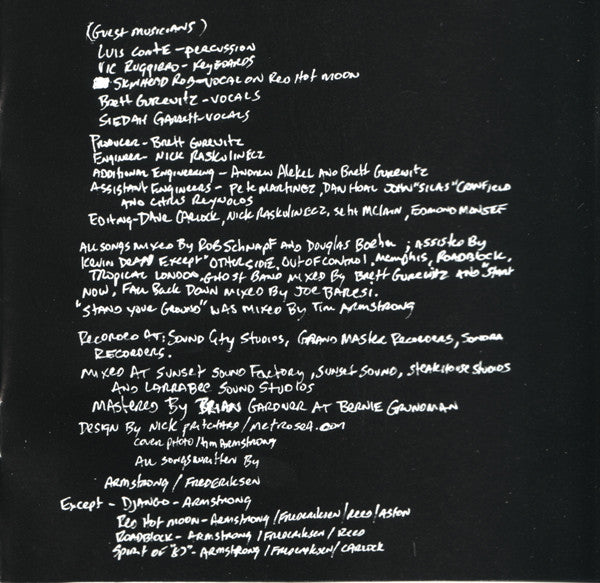 (Guest musicians)
Luis Conte - percussion
Vic Ruggiero - keyboards
Skinhead Rob - vocal on Red Hot Moon
Brett Gurewitz - vocals
Siedah Garrett - vocals
Producer - Brett Gurewitz
Engineer - Nick Raskulinecz
Additional Engineering - Andrew Alekel and Brett Gurewitz
Assistant Engineers - Pete Martinez, Dan Horl John "Silas" Cranfield
and Chris Reynolds
Editing - Dave Carlock, Nick Raskulinecz, Seth McLain, Edmond Monsef
All songs mixed by Rob Schnapf and Douglas Boehm, assisted by
Kevin Dean Except "Otherside, Out of Control, Memphis, Roadblock,
Tropical London, Ghost Band mixed by Brett Gurewitz and "Start
Now, Fall Back Down mixed by Joe Baresi.
"Stand Your Ground" was mixed by Tim Armstrong
Recorded at: Sound City Studios, Grand Master Recorders, Sonora
Recorders.
Mixed at Sunset Sound Factory, Sunset Sound, Steakhouse Studios
and Larrabee Sound Studios
Mastered by Brian Gardner at Bernie Grundman
Design by Nick Pritchard / metrosea.com
cover photo / tim Armstrong
All songs written by
Armstrong / Frederiksen
Except - Django - Armstrong
Red Hot Moon - Armstrong / Frederiksen / Reed / Aston
Roadblock - Armstrong / Frederiksen / Reed
Spirit of "87" - Armstrong / Frederiksen / Carlock